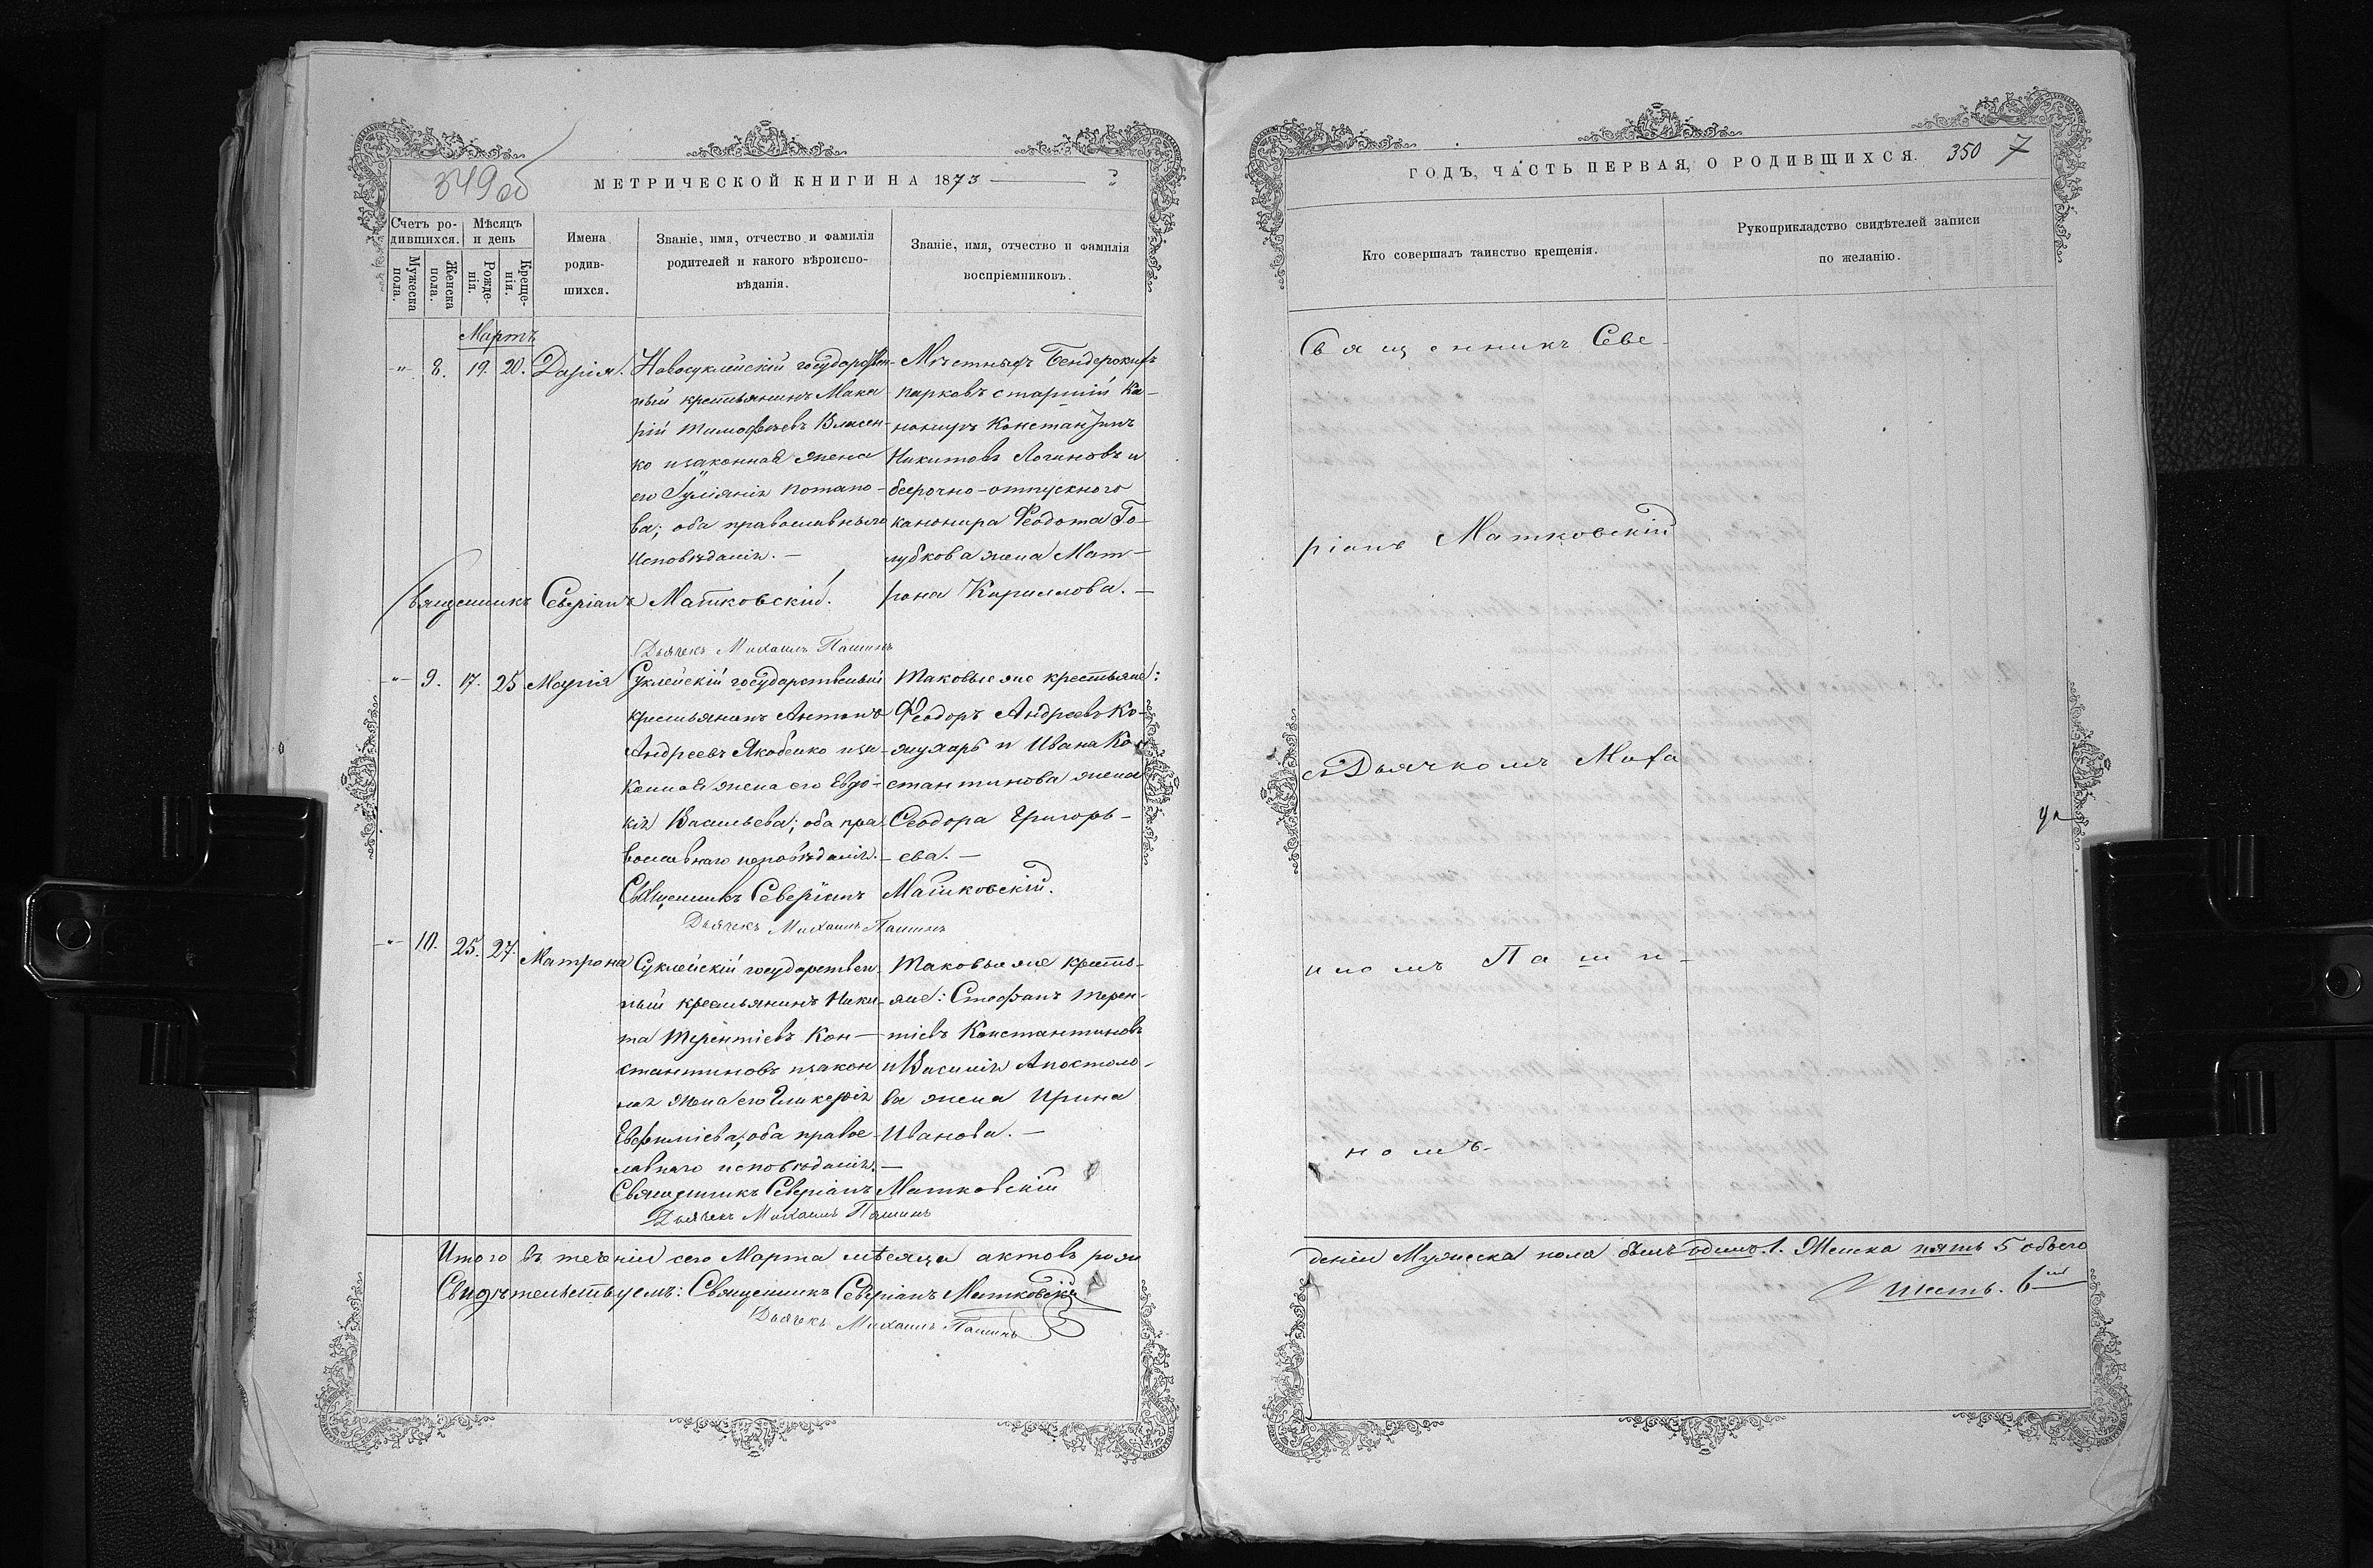 349об
МЕТРИЧЕСКОЙ КНИГИ НА 1873
Счетъ ро-
дившихся.
Мѣсяцъ
и день
Мужеска
пола.
Женска
пола.
Рожде-
нія.
Креще-
нія.
Имена
родив-
шихся.
Званіе, имя, отчество и фамилія
родителей и какого вѣроиспо-
вѣданія.
Званіе, имя, отчество и фамилія
воспріемниковъ.
Мартъ
-"- 8. 19. 20. Дарія.
Новосуклейскій государствен-
ный крестьянинъ Мака
рій Тимофѣевъ Власен-
ко и законная жена
его Іуліанія Потапо-
ва; оба православнаго
исповѣданія. —
Мѣстныхъ Бендерскихъ
парковъ старшій Ка-
нониръ Константинъ
Никитовъ Логиновъ и
безрочно-отпускного
канонира Феодота Го-
лубкова жена Мат-
рона Кириллова. —
Священникъ Северіанъ Матковскій.
Дьячекъ Михаилъ Пашинъ
-"- 9. 17. 25. Марія
Суклейскій государственный
крестьянинъ Антонъ
Андреевъ Якобенко и за-
конная жена его Евдо-
кія Васильева; оба пра-
вославнаго исповѣданія. —
Таковые же крестьяне:
Феодоръ Андреевъ Ко-
жухарь и Ивана Кон-
стантинова жена
Феодора Григорь-
ева. —
Священникъ Северіанъ Матковскій.
Дьячекъ Михаилъ Пашинъ
-"- 10. 25. 27. Матрона
Суклейскій государствен-
ный крестьянинъ Ники-
та Терентіевъ Кон-
стантиновъ и закон
ная жена его Гликерія
Евфиміева; оба правос-
лавнаго исповѣданія. —
Таковые же кресть-
яне: Стефанъ Терен-
тіевъ Константиновъ
и Василія Апостоло-
ва жена Ирина
Иванова. —
Священникъ Северіанъ Матковскій
Дьячекъ Михаилъ Пашинъ
Итого въ теченіи сего Марта мѣсяца актовъ рож
Свидѣтельствуемъ: Священникъ Северіанъ Матковскій
Дьячекъ Михаилъ Пашинъ
ГОДЪ, ЧАСТЬ ПЕРВАЯ, О РОДИВШИХСЯ. 350 7
Кто совершалъ таинство крещенія.
Рукоприкладство свидѣтелей записи
по желанію.
Священникъ Севе-
ріанъ Матковскій
съ Дьячкомъ Миха
иломъ Паши-
номъ-
деніи Мужеска пола былъ одинъ. 1. Женска пять 5 обоего
шесть. 6